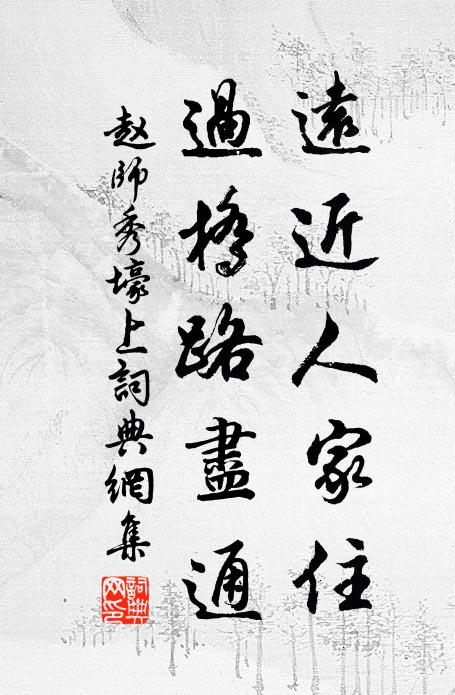 遠近人家住
過橋路盡通
赵師秀壕上詞典網集
詞典網印